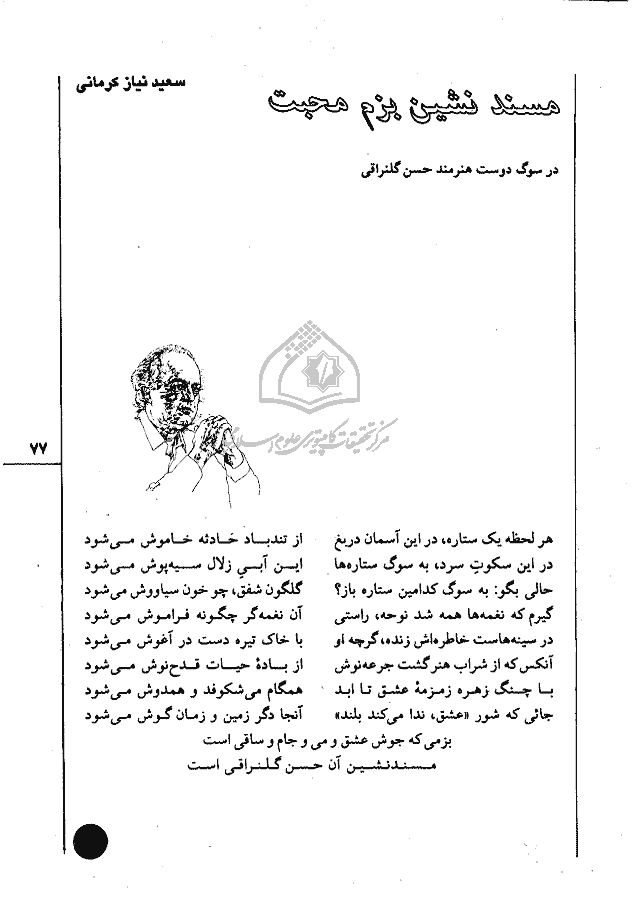 سعید نیاز کرمانی
مسند نشین بزم محبت
در سوگ دوست هنرمند حسن گلنراقی
مرکز تحقیقات کامپیوتری علوم اسلامی
۷۷
هر لحظه یک ستاره، در این آسمان دریغ از تندباد حادثه خاموش می‌شود
در این سکوتِ سرد، به سوگ ستاره‌ها این آبیِ زلال سیه‌پوش می‌شود
حالی بگو: به سوگ کدامین ستاره باز؟ گلگون شفق، چو خون سیاووش می‌شود
گیرم که نغمه‌ها همه شد نوحه، راستی آن نغمه‌گر چگونه فراموش می‌شود
در سینه‌هاست خاطره‌اش زنده، گرچه او با خاک تیره دست در آغوش می‌شود
آنکس که از شراب هنر گشت جرعه‌نوش از بادۀ حیات قدح‌نوش می‌شود
با چنگ زهره زمزمۀ عشق تا ابد همگام می‌شکوفد و همدوش می‌شود
جائی که شور «عشق، ندا می‌کند بلند» آنجا دگر زمین و زمان گوش می‌شود
بزمی که جوش عشق و می و جام و ساقی است
مسندنشین آن حسن گلنراقی است